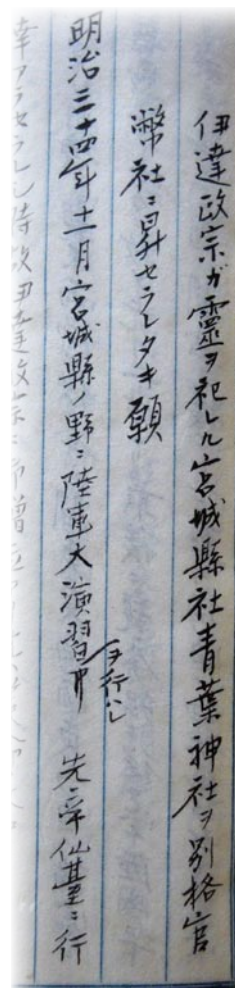 伊達政宗ガ靈ヲ祀レル宮城縣社青葉神社ヲ別格官
幣社ニ昇セラレタキ願
明治三十四年十一月宮城縣ノ野ニ陸軍大演習ヲ行ハレ 先帝仙臺ニ行
幸アラセラレシ時故伊達政宗ニ